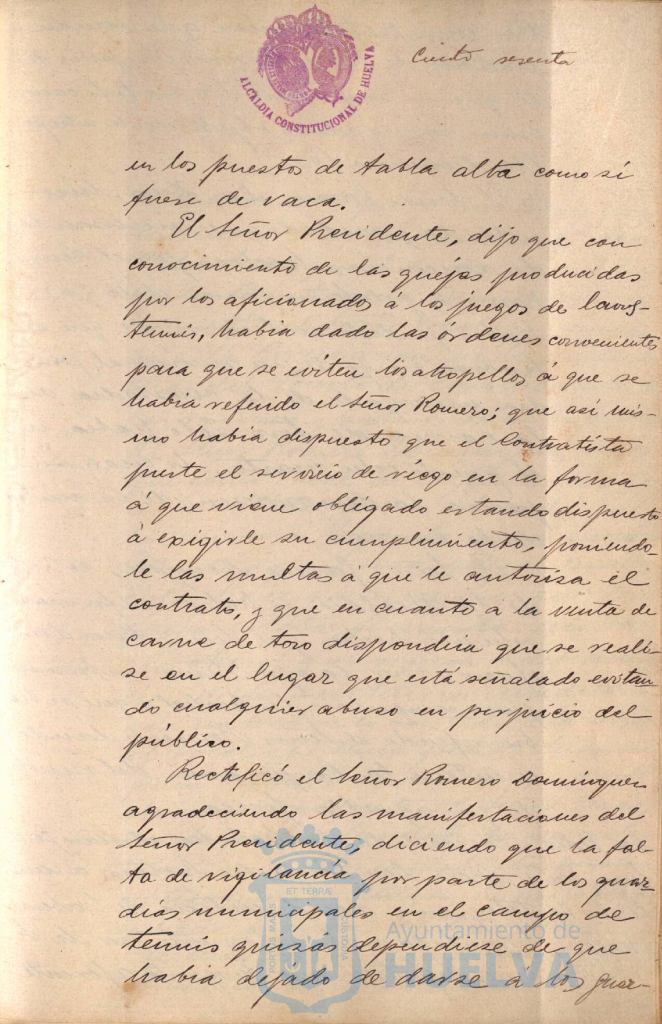 Ciento sesenta
ALCALDIA CONSTITUCIONAL DE HUELVA
en los puestos de tabla alta como si
fuese de vaca.
El Señor Presidente, dijo que con
conocimiento de las quejas producidas
por los aficionados á los juegos de lawng-
tennis, habia dado las órdenes convenientes
para que se eviten los atropellos á que se
habia referido el Señor Romero; que asi mis-
mo habia dispuesto que el Contratista
preste el servicio de riego en la forma
á que viene obligado estando dispuesto
á exigirle su cumplimiento, poniendo-
le las multas á que le autoriza el
contrato, y que en cuanto a la venta de
carne de toro dispondria que se reali-
se en el lugar que está señalado evitan-
do cualquier abuso en perjuicio del
público.
Rectificó el Señor Romero Dominguez
agradeciendo las manifestaciones del
Señor Presidente, diciendo que la fal-
ta de vigilancia por parte de los guar-
dias municipales en el campo de
tennis quizás dependiese de que
habia dejado de darse á los guar-
PORTUS MARIS ET TERRÆ CUSTODIA
Ayuntamiento de
HUELVA